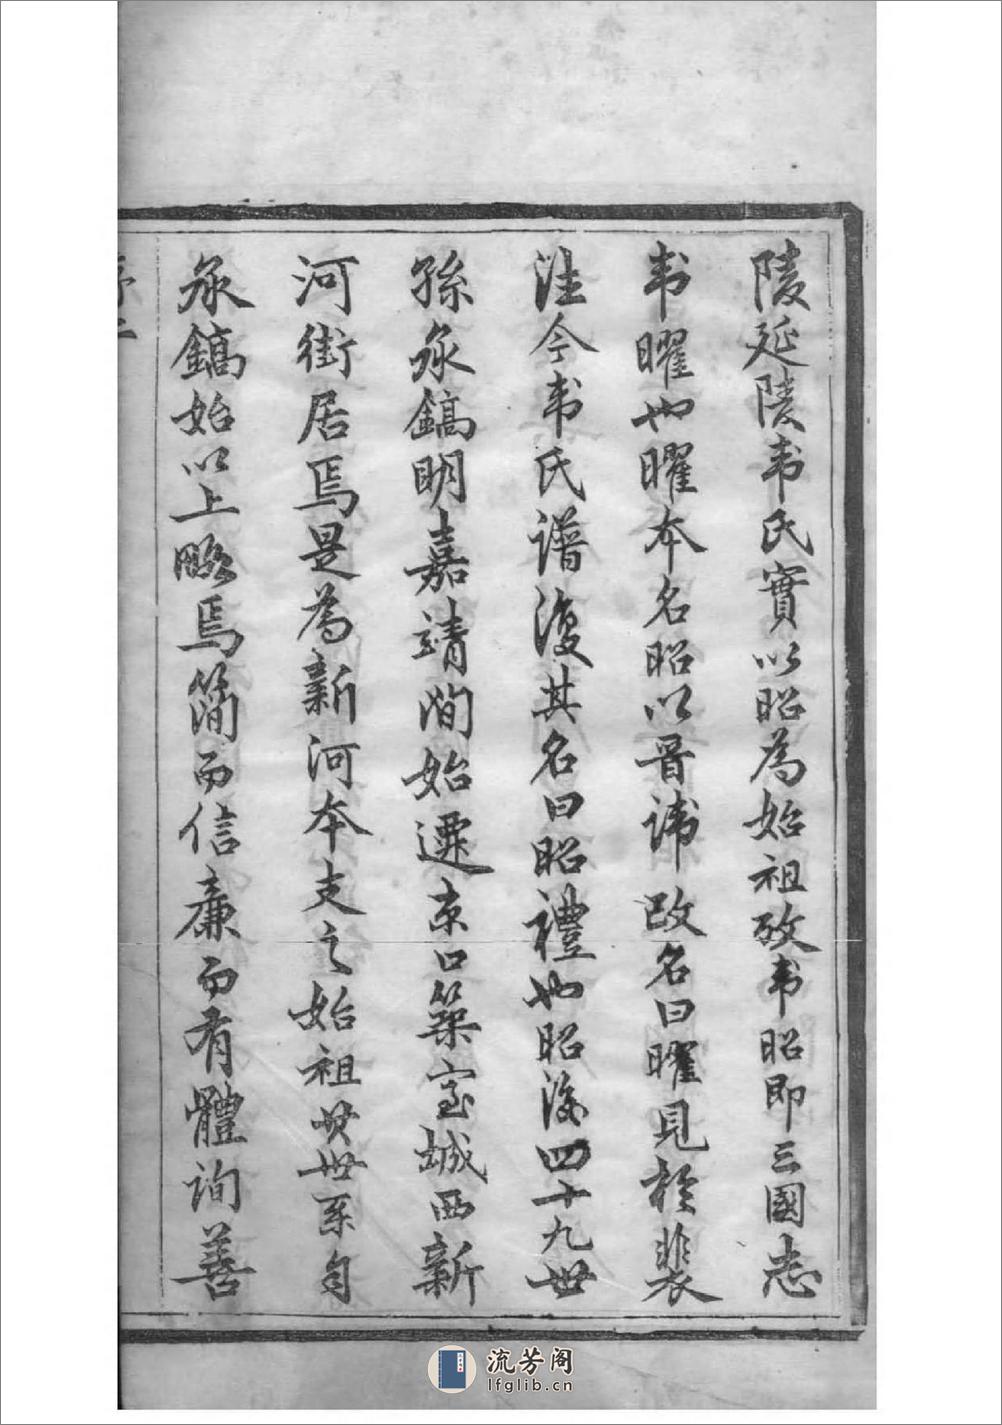 陵延陵韦氏實以昭為始祖攷韦昭即三國志
韦曜也曜本名昭以晋諱改名曰曜見於裴
注今韦氏譜復其名曰昭禮也昭後四十九世
孫承鎬明嘉靖間始遷京口築室城西新
河街居焉是為新河本支之始祖其世系自
承鎬始以上略焉簡而信廉而有體詢善
流芳阁
lfglib.cn